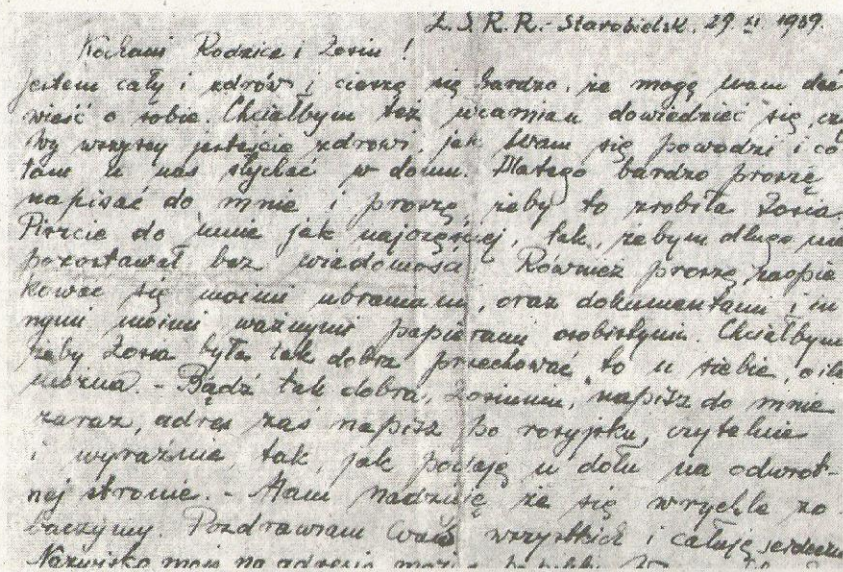 Z.S.R.R. - Starobielsk. 29 XI 1939.
Kochani Rodzice i Zosiu!
Jestem cały i zdrów i cieszę się bardzo, że mogę Wam dać
wieść o sobie. Chciałbym też wzamian dowiedzieć się, cz
Wy wszyscy jesteście zdrowi, jak Wam się powodzi i co
tam u nas słychać w domu. Dlatego bardzo proszę
napisać do mnie i proszę, żeby to zrobiła Zosia.
Piszcie do mnie jak najczęściej, tak, żebym długo nie
pozostawał bez wiadomości. Również proszę, zaopie
kować się moimi ubraniami, oraz dokumentami i in
nymi moimi ważnymi papierami osobistymi. Chciałbym
żeby Zosia była tak dobra przechować to u siebie, o ile
można. - Bądź tak dobra, Zosieniu, napisz do mnie
zaraz, adres zaś napisz po rosyjsku, czytelnie
i wyraźnie, tak, jak podaję u dołu na odwrot-
nej stronie. - Mam nadzieję że się wrychle zo
baczymy. Pozdrawiam Was wszystkich i całuję serdeczn
Nazwisko moje na adresie